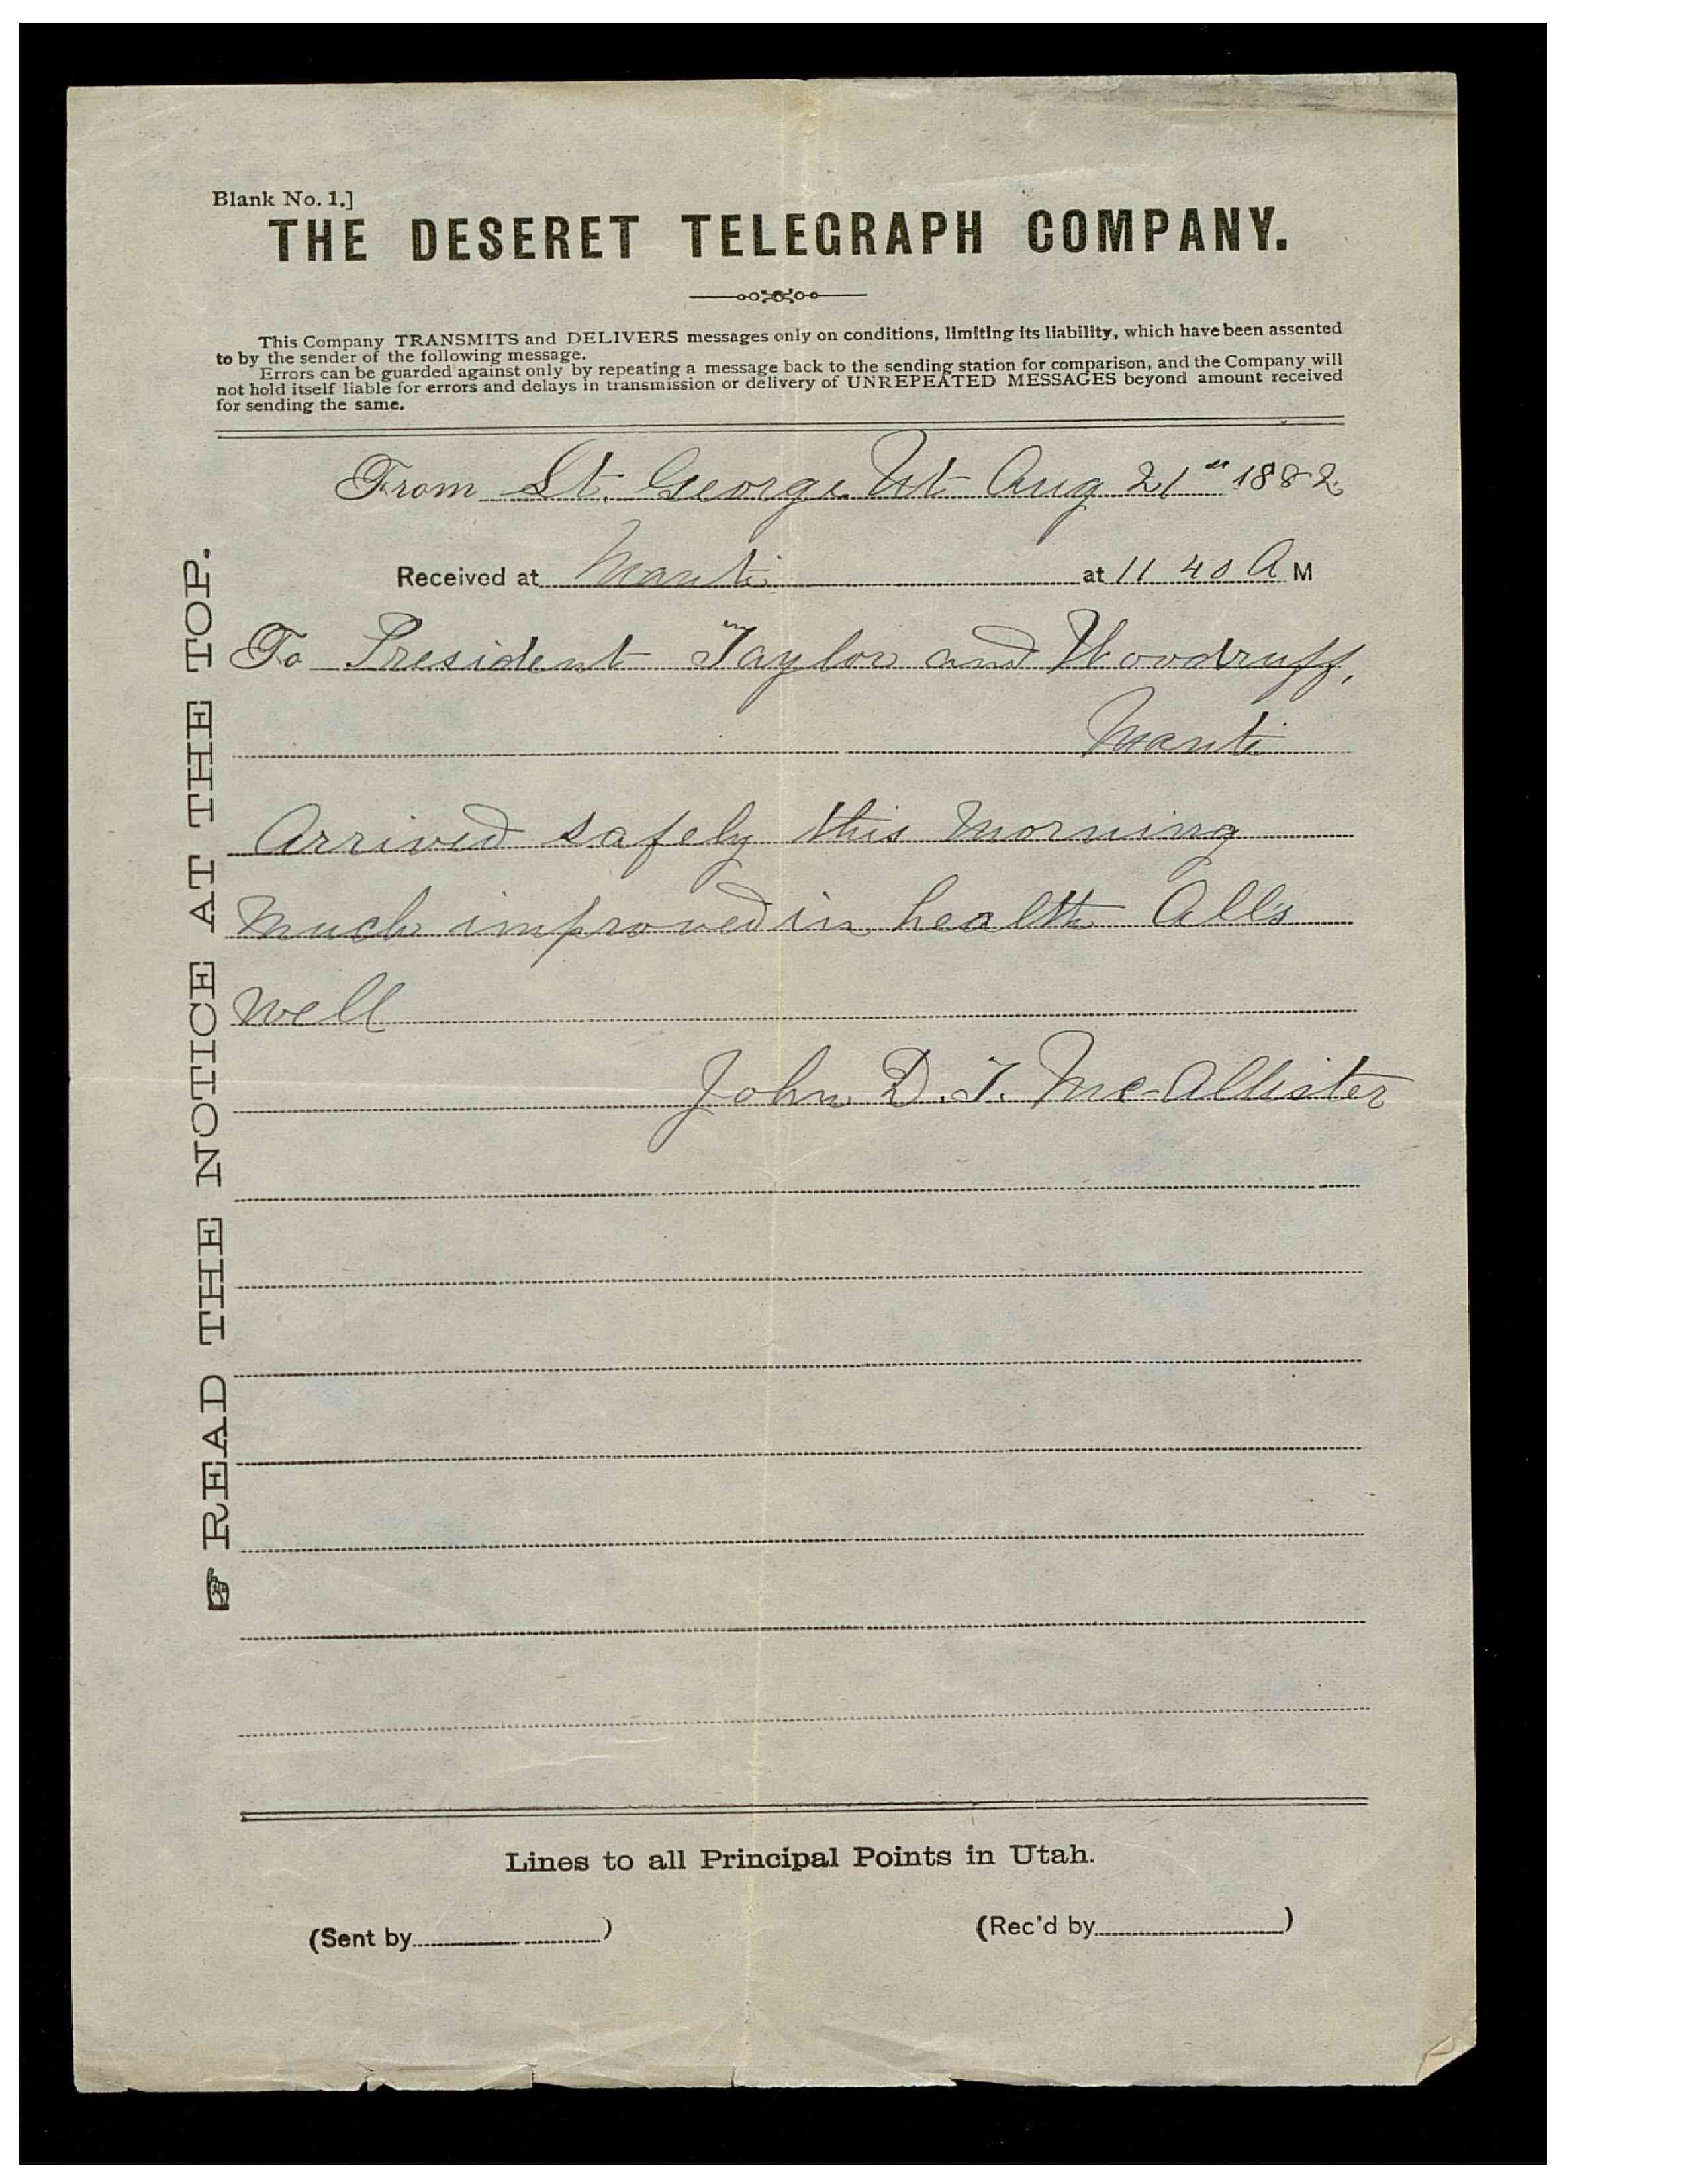 Blank No. 1.]
THE DESERET TELEGRAPH COMPANY.
This Company TRANSMITS and DELIVERS messages only on conditions, limiting its liability, which have been assented
to by the sender of the following message.
Errors can be guarded against only by repeating a message back to the sending station for comparison, and the Company will
not hold itself liable for errors and delays in transmission or delivery of UNREPEATED MESSAGES beyond amount received
for sending the same.
From St. George Ut Aug 21st 1882
Received at Manti at 11 40 A M
To President Taylor and Woodruff,
Manti
Arrived safely this Morning
Much improved in health All's
well
John D. T. Mc-Allister
READ THE NOTICE AT THE TOP.
Lines to all Principal Points in Utah.
(Sent by ) (Rec'd by )